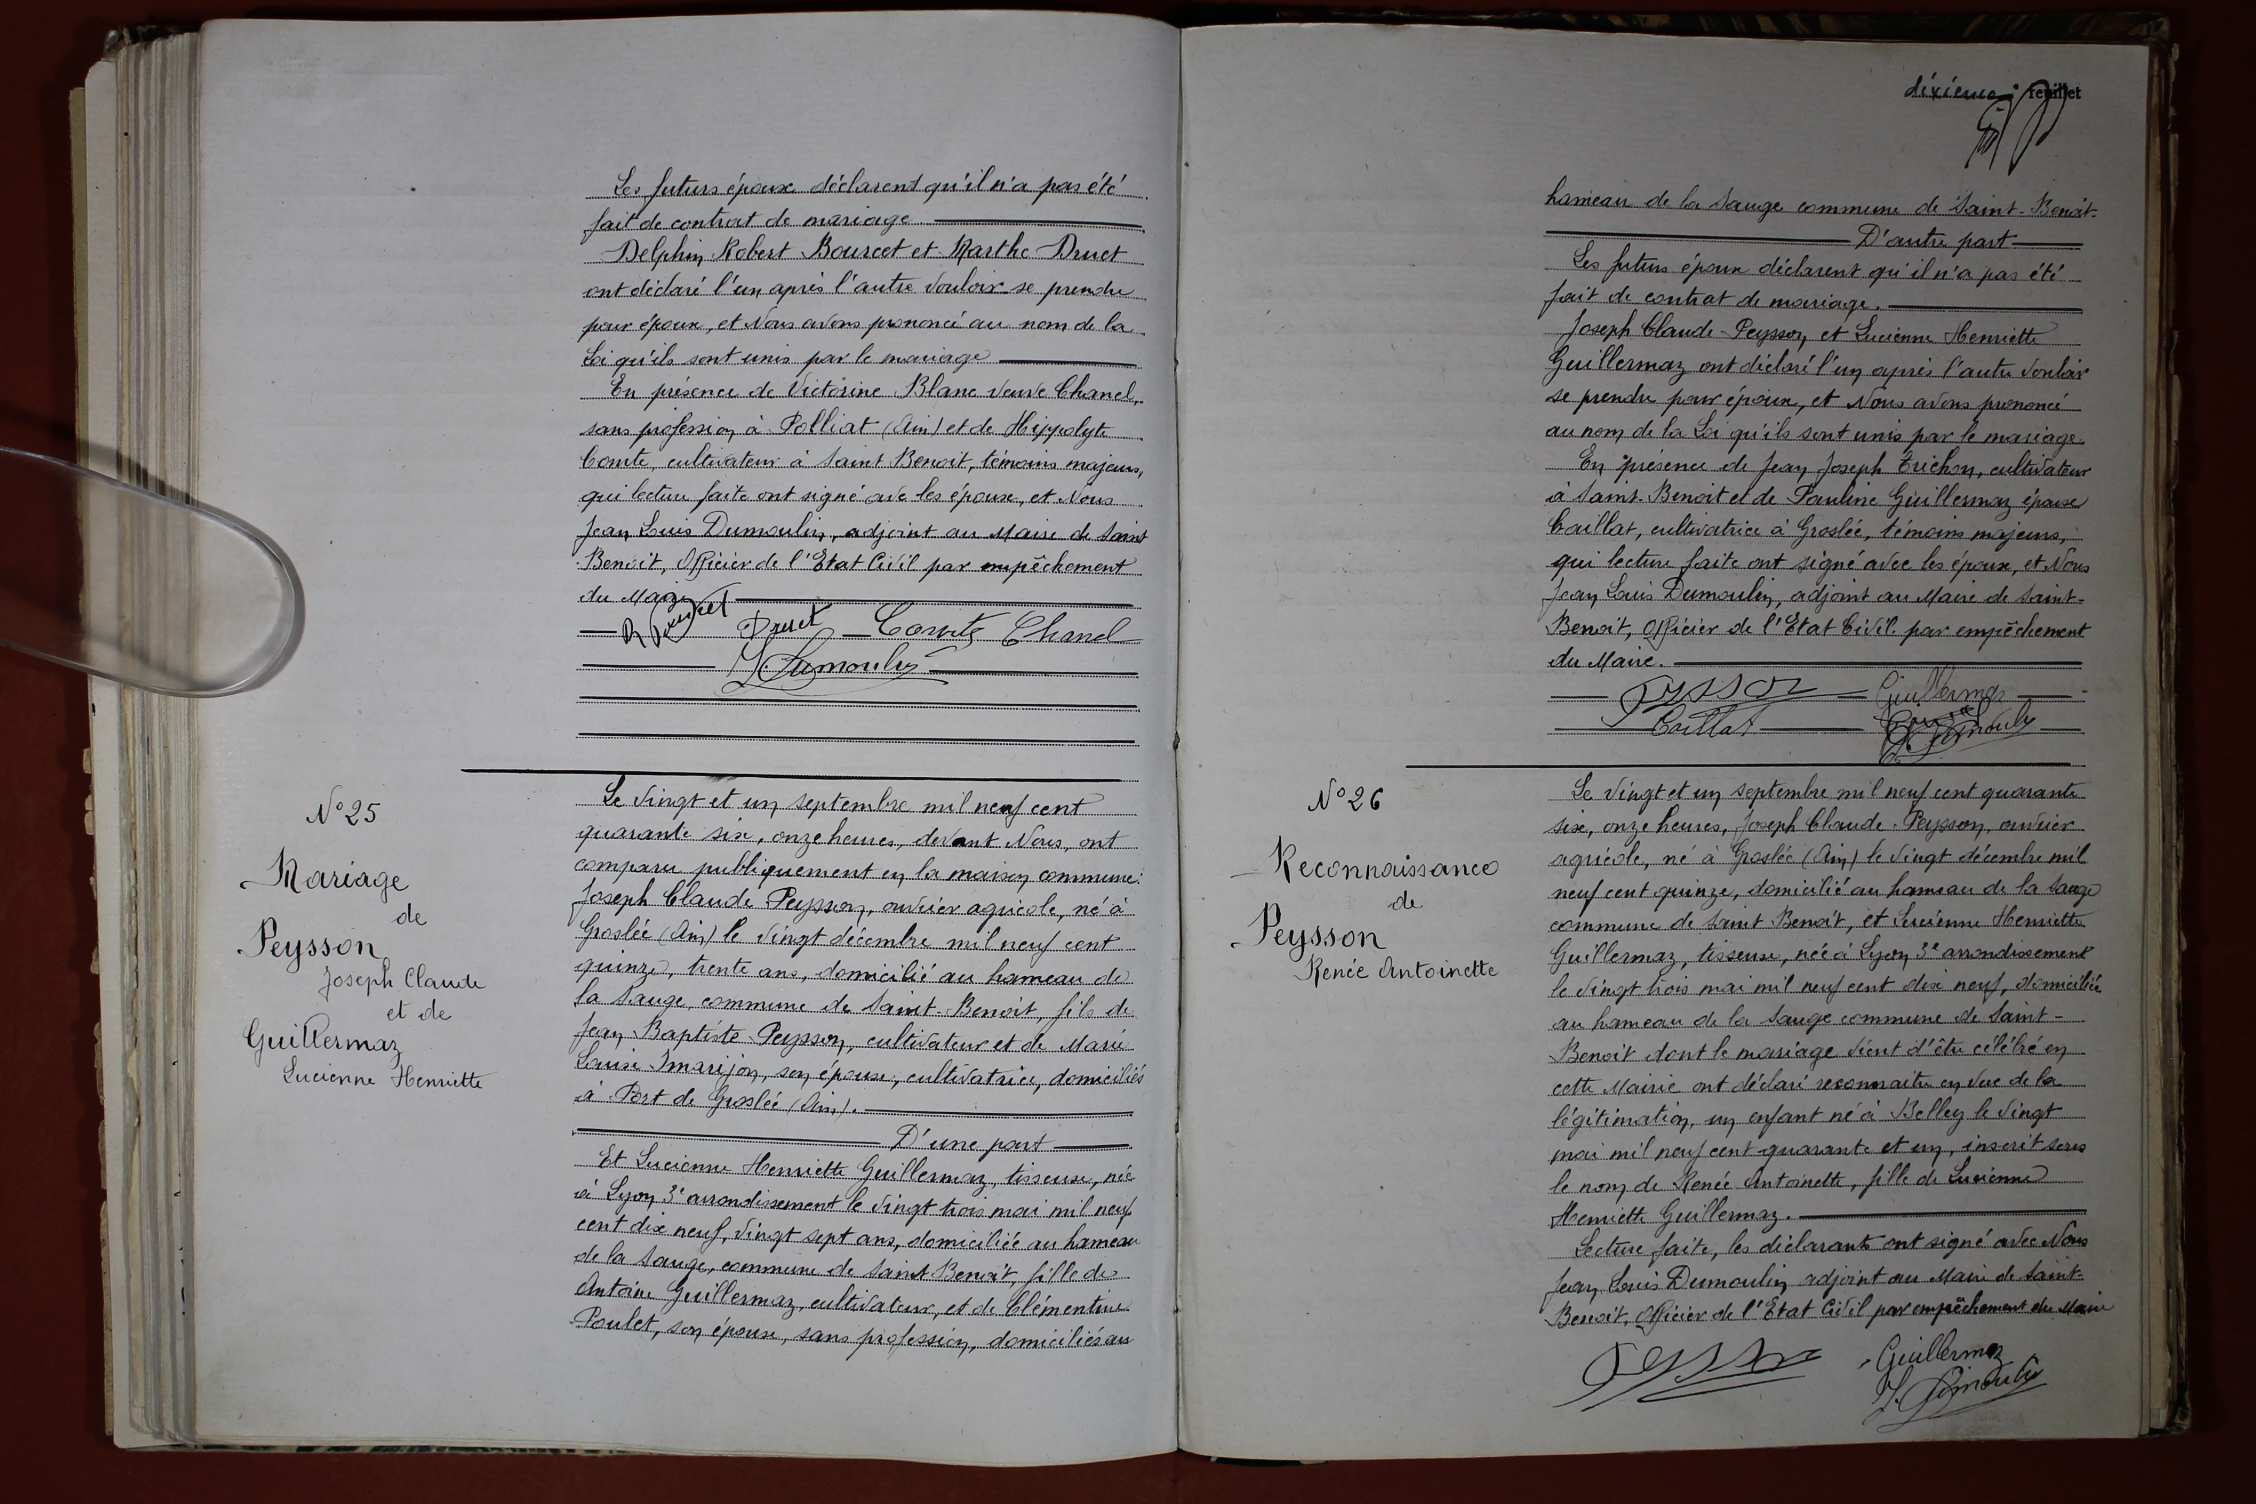 Les futurs époux déclarent qu'il n'a pas été
fait de contrat de mariage
Delphin Robert Bourcet et Marthe Druet
ont déclaré l'un après l'autre vouloir se prendre
pour époux, et Nous avons prononcé au nom de la
Loi qu'ils sont unis par le mariage
En présence de Victorine Blanc veuve Chanel,
sans profession à Polliat (Ain) et de Hippolyte
Comte, cultivateur à Saint Benoit, témoins majeurs,
qui lecture faite ont signé avec les époux, et Nous
Jean Louis Dumoulin, adjoint au Maire de Saint
Benoit, Officier de l'Etat Civil par empêchement
du Maire
Druet Comte Chanel
J. Dumoulin
N° 25
Mariage
de
Peysson
Joseph Claude
et de
Guillermaz
Lucienne Henriette
Le vingt et un septembre mil neuf cent
quarante six, onze heures, devant Nous, ont
comparu publiquement en la maison commune:
Joseph Claude Peysson, ouvrier agricole, né à
Groslée (Ain) le vingt décembre mil neuf cent
quinze, trente ans, domicilié au hameau de
la Sauge, commune de Saint-Benoit, fils de
Jean Baptiste Peysson, cultivateur et de Marie
Louise Imarijon, son épouse, cultivatrice, domiciliés
à Port de Groslée (Ain).
D'une part
Et Lucienne Henriette Guillermaz, tisseuse, née
à Lyon 3e arrondissement le vingt trois mai mil neuf
cent dix neuf, vingt sept ans, domiciliée au hameau
de la Sauge, commune de Saint Benoit, fille de
Antoine Guillermaz, cultivateur, et de Clémentine
Poulet, son épouse, sans profession, domiciliés au
dixième feuillet
hameau de la Sauge commune de Saint-Benoit.
D'autre part
Les futurs époux déclarent qu'il n'a pas été
fait de contrat de mariage.
Joseph Claude Peysson, et Lucienne Henriette
Guillermaz ont déclaré l'un après l'autre vouloir
se prendre pour époux, et Nous avons prononcé
au nom de la Loi qu'ils sont unis par le mariage.
En présence de Jean Joseph Trichon, cultivateur
à Saint-Benoit et de Pauline Guillermaz épouse
Caillat, cultivatrice à Groslée, témoins majeurs,
qui lecture faite ont signé avec les époux, et Nous
Jean Louis Dumoulin, adjoint au Maire de Saint-
Benoit, Officier de l'Etat Civil par empêchement
du Maire.
Peysson Guillermaz
Caillat J. Dumoulin
N° 26
Reconnaissance
de
Peysson
Renée Antoinette
Le vingt et un septembre mil neuf cent quarante
six, onze heures, Joseph Claude Peysson, ouvrier
agricole, né à Groslée (Ain) le vingt décembre mil
neuf cent quinze, domicilié au hameau de la Sauge
commune de Saint Benoit, et Lucienne Henriette
Guillermaz, tisseuse, née à Lyon 3e arrondissement
le vingt trois mai mil neuf cent dix neuf, domiciliée
au hameau de la Sauge commune de Saint-
Benoit dont le mariage vient d'être célébré en
cette Mairie ont déclaré reconnaitre en vue de la
légitimation, un enfant né à Belley le vingt
mai mil neuf cent quarante et un, inscrit sous
le nom de Renée Antoinette, fille de Lucienne
Henriette Guillermaz.
Lecture faite, les déclarants ont signé avec Nous
Jean Louis Dumoulin adjoint au Maire de Saint-
Benoit, Officier de l'Etat Civil par empêchement du Maire
Peysson Guillermaz
J. Dumoulin